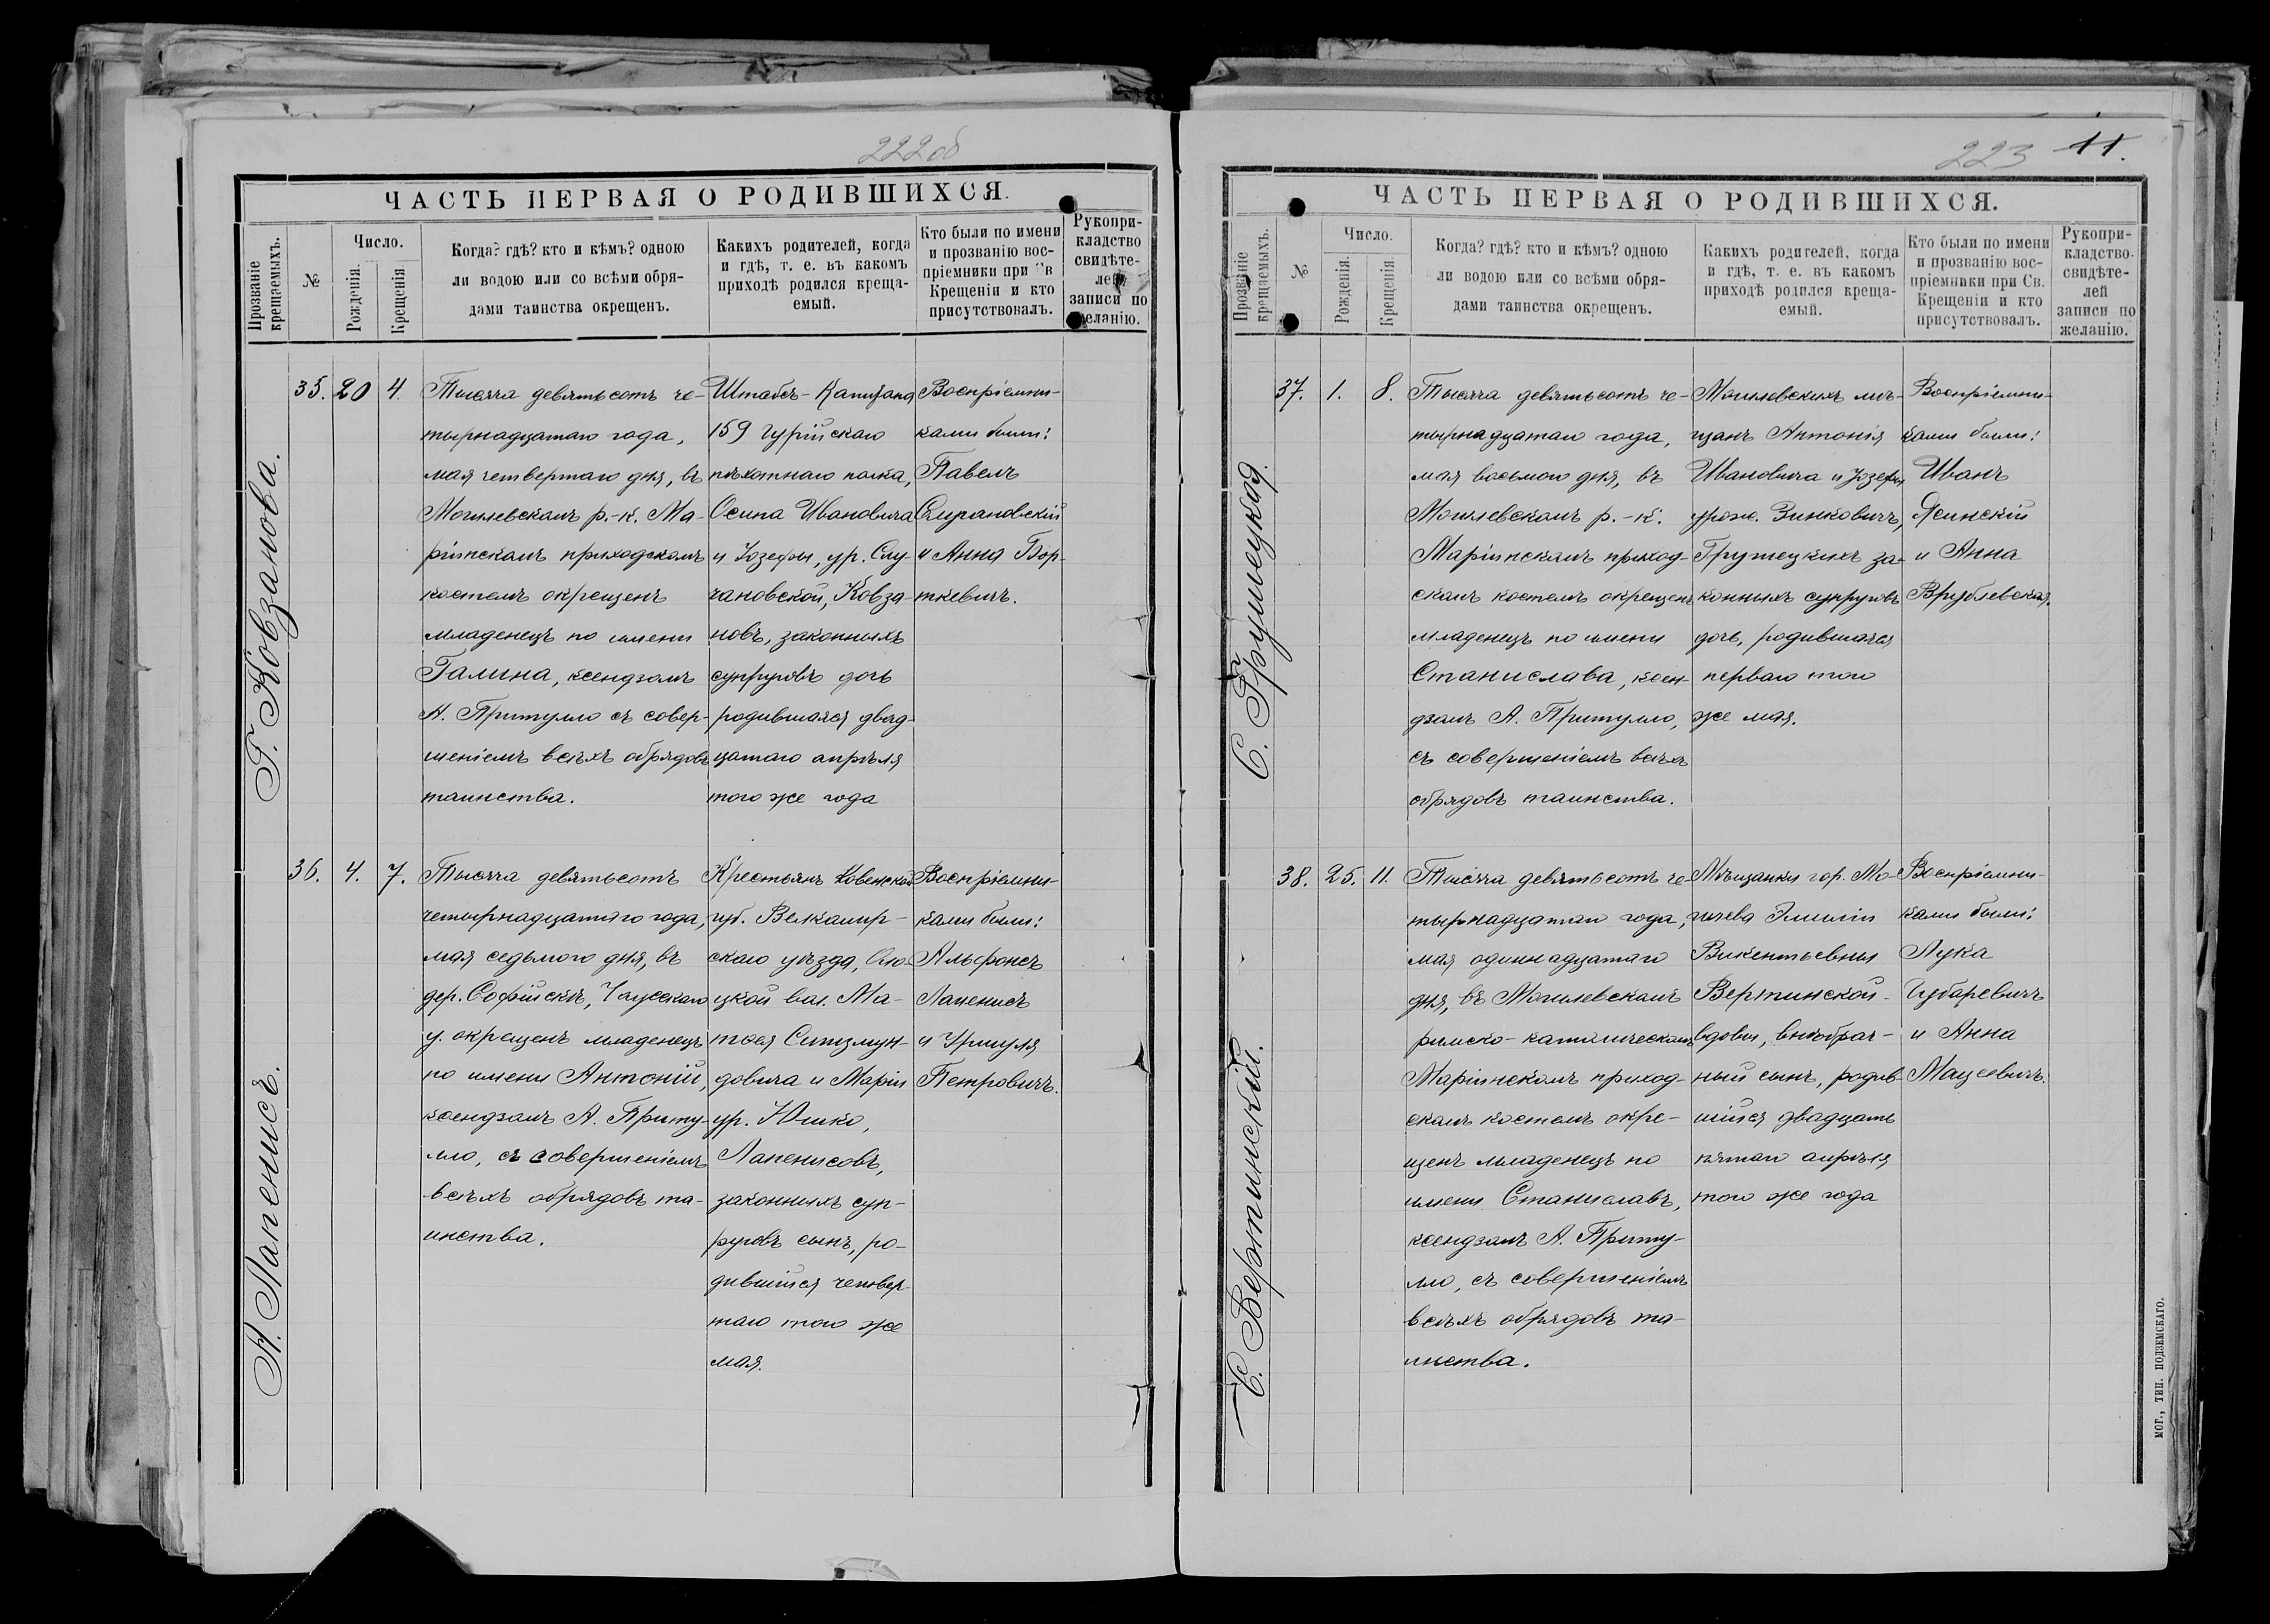 222об
ЧАСТЬ ПЕРВАЯ О РОДИВШИХСЯ.
Прозваніе крещаемыхъ.
№
Число.
Рожденія.
Крещенія.
Когда? гдѣ? кто и кѣмъ? одною
ли водою или со всѣми обря-
дами таинства окрещенъ.
Какихъ родителей, когда
и гдѣ, т. е. въ какомъ
приходѣ родился креща-
емый.
Кто были по имени
и прозванію вос-
пріемники при Св
Крещеніи и кто
присутствовалъ.
Рукопри-
кладство
свидѣте-
лей
записи по
желанію.
Г. Ковзанова.
35. 20 4.
Тысяча девятьсотъ че-
тырнадцатаго года,
мая четвертаго дня, въ
Могилевскомъ р.-к. Ма-
ріинскомъ приходскомъ
костелѣ окрещенъ
младенецъ по имени
Галина, ксендзомъ
А. Притулло съ совер-
шеніемъ всѣхъ обрядовъ
таинства.
Штабсъ-Капитана
159 Гурійскаго
пѣхотнаго полка,
Осипа Ивановича
и Юзефы, ур. Слу-
чановской, Ковза-
новъ, законныхъ
супруговъ дочь
родившаяся двад-
цатаго апрѣля
того же года
Воспріемни-
ками были:
Павелъ
и Анна Бор-
ткевичъ.
А. Лапенисъ.
36. 4. 7.
Тысяча девятьсотъ
четырнадцатаго года,
мая седьмого дня, въ
дер. Софійскѣ, Чаусскаго
у. окрещенъ младенецъ
по имени Антоній,
ксендзомъ А. Приту-
лло, съ совершеніемъ
всѣхъ обрядовъ та-
инства.
Крестьянъ Ковенской
губ. Велкомир-
скаго уѣзда,
цкой вол. Ма-
тоея Сигизмун-
довича и Маріи
ур. Юшко,
Лапенисовъ,
законныхъ суп-
руговъ сынъ, ро-
дившійся четвер-
таго того же
мая.
Воспріемни-
ками были:
Альфонсъ
Лапенисъ
и Уршуля
Петровичъ.
223 11.
ЧАСТЬ ПЕРВАЯ О РОДИВШИХСЯ.
Прозваніе крещаемыхъ.
№
Число.
Рожденія.
Крещенія.
Когда? гдѣ? кто и кѣмъ? одною
ли водою или со всѣми обря-
дами таинства окрещенъ.
Какихъ родителей, когда
и гдѣ, т. е. въ какомъ
приходѣ родился креща-
емый.
Кто были по имени
и прозванію вос-
пріемники при Св.
Крещеніи и кто
присутствовалъ.
Рукопри-
кладство
свидѣте-
лей
записи по
желанію.
С. Грушецкая.
37. 1. 8.
Тысяча девятьсотъ че-
тырнадцатаго года,
мая восьмого дня, въ
Могилевскомъ р.-к.
Маріинскомъ приход-
скомъ костелѣ окрещенъ
младенецъ по имени
Станислава, ксен-
дзомъ А. Притулло,
съ совершеніемъ всѣхъ
обрядовъ таинства.
Могилевскихъ мѣ-
щанъ Антонія
Ивановича и Юзефы
урож. Зинковичъ,
Грушецкихъ за-
конныхъ супруговъ
дочь, родившаяся
перваго того
же мая.
Воспріемни-
ками были:
Иванъ
Ясинскій
и Анна
Врублевская.
С. Вертинскій.
38. 25. 11.
Тысяча девятьсотъ че-
тырнадцатаго года,
мая одиннадцатаго
дня, въ Могилевскомъ
римско-католическомъ
Маріинскомъ приход-
скомъ костелѣ окре-
щенъ младенецъ по
имени Станиславъ,
ксендзомъ А. Приту-
лло, съ совершеніемъ
всѣхъ обрядовъ та-
инства.
Мѣщанки гор. Мо-
гилева Эмиліи
Викентьевны
Вертинской-
вдовы, внѣбрач-
ный сынъ, родив-
шійся двадцать
пятаго апрѣля
того же года
Воспріемни-
ками были:
Лука
Губаревичъ
и Анна
Мацеевичъ.
МОГ., ТИП. ПОДЗЕМСКАГО.